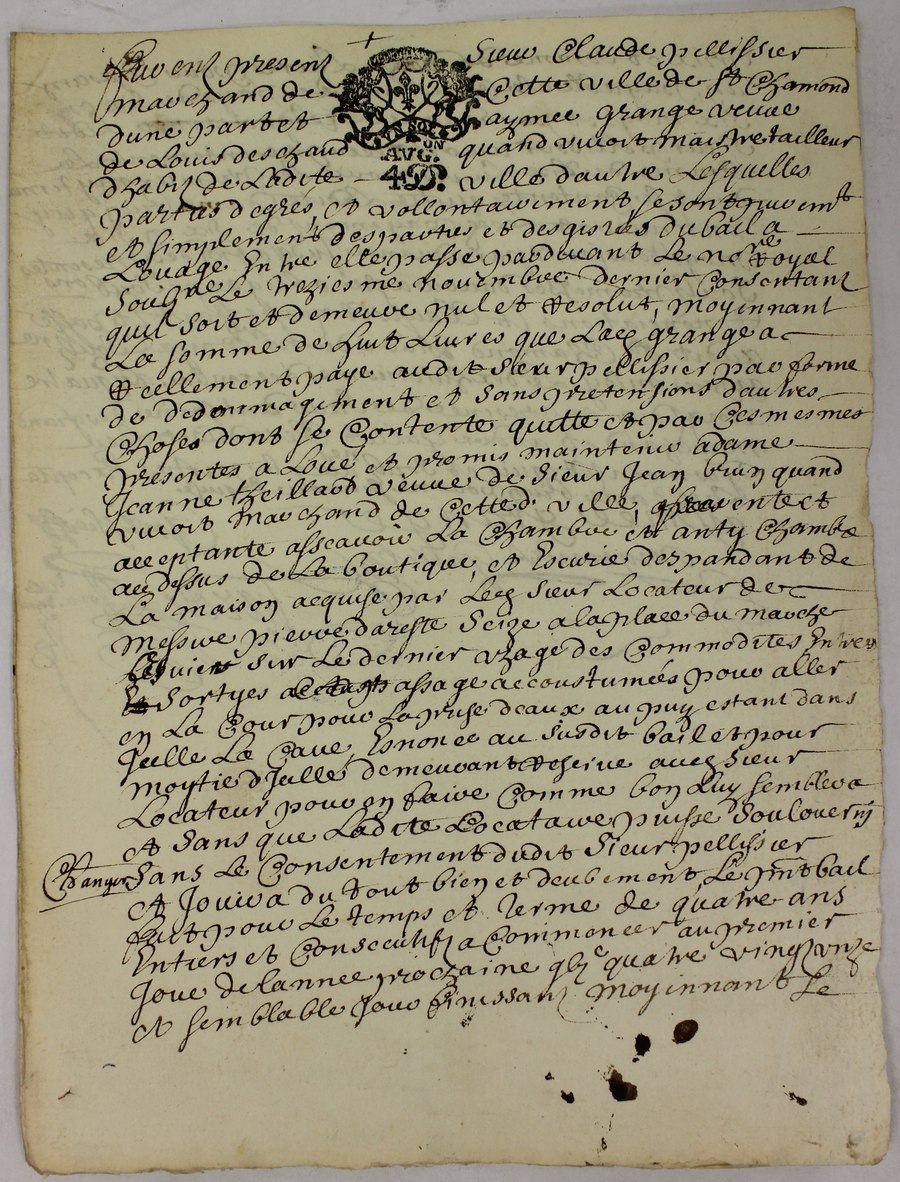 Furent present Sieur Claude pellissier
marchand de Cette ville de st Chamond
dune part et aymee grange veuve
de Louis deschaud quand vivoit maistre tailleur
dhabit de Ladite ville dautre Lesquelles
UN SOL
ON
AVG.
4 D.
parties degres, et vollontairement se sont puremt
et simplement desparties et desgistees du bail a
Louage Entre elle passe pardevant Le nore Royal
Soubgne Le treziesme novembre dernier Consentant
quil soit et demeure nul et Resolut, moyennant
La somme de huit Livres que Lad grange a
Reellement paye audit Sieur pellissier par forme
de dedommagement et sans pretensions dautres
Choses dont se Contente quitte et par Ces mesmes
presentes a Loue et promis maintenir a dame
Jeanne theilland veuve de Sieur Jean brun quand
vivoit Marchand de Cetted ville, presente et
acceptante asscavoir La Chambre et anty Chambre
au dessus de La boutique, et Escurie despandant de
La maison acquise par Led Sieur Locateur de
Messire pierre dareste Seize a la place du marche
sur Le dernier uzage des Commodites Entrees
Sortyes assage accoustumees pour aller
en La Cour pour La prise deaux au puy estant dans
Jcelle La Cave, Esnoncé au susdit bail et pour
moytie dJcelle demeurant Reserve aud Sieur
Locateur pour en faire Comme bon Luy semblera
et Sans que Ladite Locataire puisse Soulouer nj
Changer Sans Le Consentement dudit Sieur pellissier
et Jouira du tout bien et deubement, Le pnt bail
fait pour Le temps et terme de quatre ans
Entiers et Consecutifz a Commencer au premier
Jour de lannee prochaine gbic quatre vingtz unze
et semblable Jour finissant moyennant Le